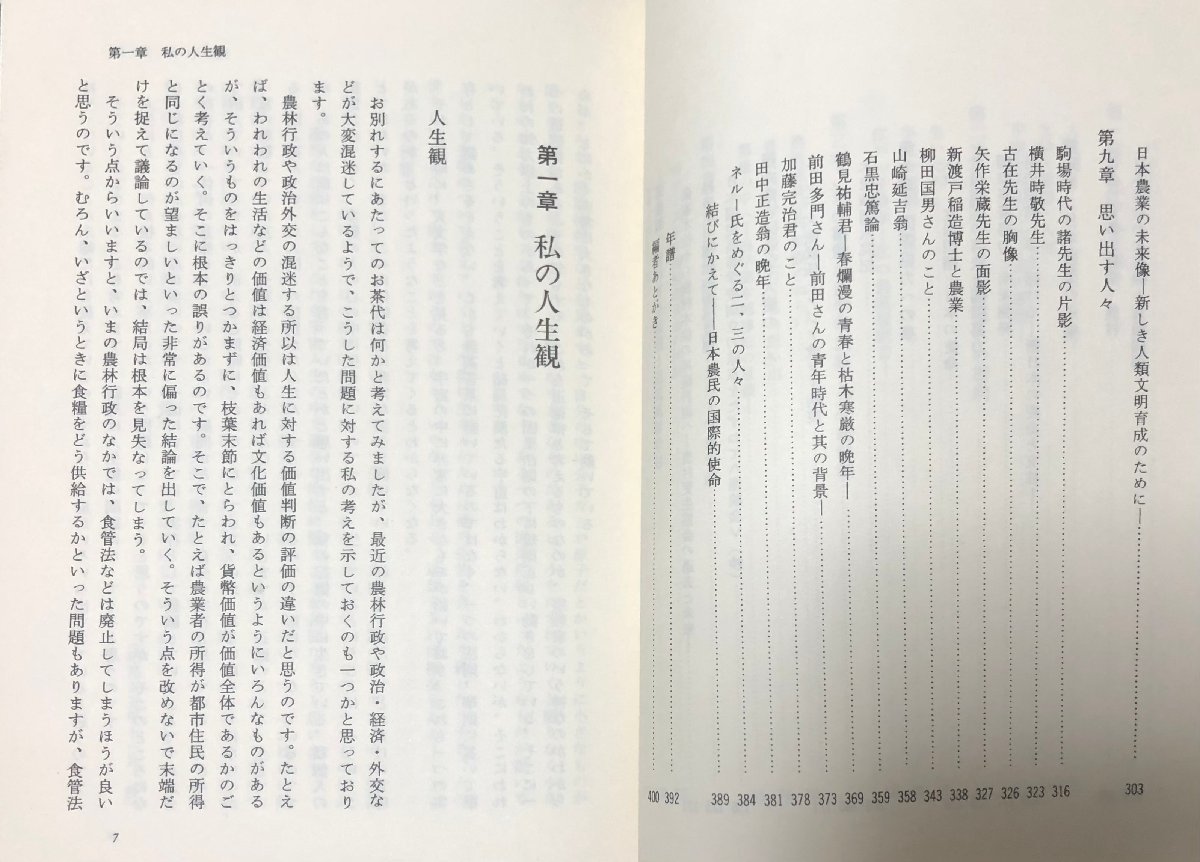 日本農業の未来像―新しき人類文明育成のために―……303
第九章　思い出す人々
駒場時代の諸先生の片影……316
横井時敬先生……323
古在先生の胸像……326
矢作栄蔵先生の面影……327
新渡戸稲造博士と農業……338
柳田国男さんのこと……343
山崎延吉翁……358
石黒忠篤論……359
鶴見祐輔君―春爛漫の青春と枯木寒厳の晩年―……369
前田多門さん―前田さんの青年時代と其の背景―……373
加藤完治君のこと……378
田中正造翁の晩年……381
ネルー氏をめぐる二、三の人々……384
結びにかえて――日本農民の国際的使命……389
年譜……392
編者あとがき……400
第一章　私の人生観
第一章　私の人生観
人生観
お別れするにあたってのお茶代は何かと考えてみましたが、最近の農林行政や政治・経済・外交な
どが大変混迷しているようで、こうした問題に対する私の考えを示しておくのも一つかと思っており
ます。
農林行政や政治外交の混迷する所以は人生に対する価値判断の評価の違いだと思うのです。たとえ
ば、われわれの生活などの価値は経済価値もあれば文化価値もあるというようにいろんなものがある
が、そういうものをはっきりとつかまずに、枝葉末節にとらわれ、貨幣価値が価値全体であるかのご
とく考えていく。そこに根本の誤りがあるのです。そこで、たとえば農業者の所得が都市住民の所得
と同じになるのが望ましいといった非常に偏った結論を出していく。そういう点を改めないで末端だ
けを捉えて議論しているのでは、結局は根本を見失なってしまう。
そういう点からいいますと、いまの農林行政のなかでは、食管法などは廃止してしまうほうが良い
と思うのです。むろん、いざというときに食糧をどう供給するかといった問題もありますが、食管法
7